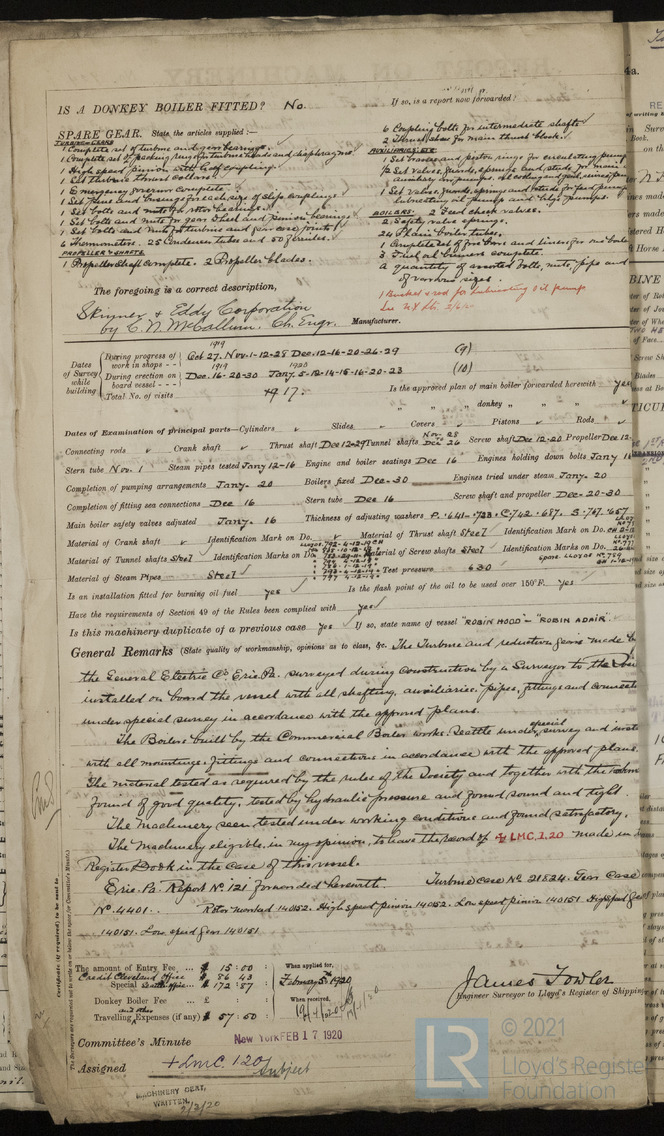 4a.
IS A DONKEY BOILER FITTED? No.
If so, is a report now forwarded?
SPARE GEAR. State the articles supplied :—
TURBINE & GEARS
1 Complete set of turbine and gear bearings.
1 Complete set of packing rings for turbine heads and diaphragms
1 High speed pinion with half coupling.
1 Set thrust collars
1 Emergency governor complete.
1 Set bolts and nuts for rotor bearings.
1 Set bolts and nuts for gear wheel and pinion bearings
1 Set bolts and nuts for turbine and gear case joints
6 Thermometers. 25 Condenser tubes and 50 ferrules.
PROPELLER & SHAFTS.
1 Propeller Shaft complete. 2 Propeller blades.
6 Coupling bolts for intermediate shafts
2 Thrust shoes for main thrust block.
AUXILIARIES ETC
1 Set valves, guards, springs and studs for feed pump
lubricating oil pumps and bilge pumps.
BOILERS. 2 Feed check valves.
2 Safety valve springs.
24 Plain boiler tubes.
1 Complete set of fire bars and linings for one boiler
3 Fuel oil burners complete.
A quantity of assorted bolts, nuts, pipe and
of various sizes.
1 Bucket & rod for lubricating oil pump
The foregoing is a correct description,
Skinner & Eddy Corporation
by C. N. McCallum, Ch. Engr. Manufacturer.
Dates of Survey while building
During progress of work in shops - -
1919
Oct 27. Nov. 1-12-28 Dec. 12-16-20-26-29 (9)
During erection on board vessel - - -
1919 1920
Dec. 16-20-30 Jany. 5-12-14-15-16-20-23 (10)
Total No. of visits 17.
Is the approved plan of main boiler forwarded herewith yes
" " " donkey " " "
Dates of Examination of principal parts—Cylinders Slides Covers Pistons Rods
Connecting rods Crank shaft Thrust shaft Dec 12-29 Tunnel shafts Nov. 28 Dec 26 Screw shaft Dec 12-20 Propeller Dec 12
Stern tube Nov. 1 Steam pipes tested Jany 12-16 Engine and boiler seatings Dec 16 Engines holding down bolts Jany 16
Completion of pumping arrangements Jany. 20 Boilers fixed Dec. 30 Engines tried under steam Jany. 20
Completion of fitting sea connections Dec 16 Stern tube Dec 16 Screw shaft and propeller Dec. 20-30
Main boiler safety valves adjusted Jany. 16 Thickness of adjusting washers P. .641-.728 C .742-.687. S .767-.657
Material of Crank shaft Identification Mark on Do. Material of Thrust shaft Steel Identification Mark on Do.
Material of Tunnel shafts Steel Identification Marks on Do. Material of Screw shafts Steel Identification Marks on Do.
Material of Steam Pipes Steel Test pressure 630
Is an installation fitted for burning oil fuel yes Is the flash point of the oil to be used over 150°F. yes
Have the requirements of Section 49 of the Rules been complied with yes
Is this machinery duplicate of a previous case yes If so, state name of vessel "ROBIN HOOD" - "ROBIN ADAIR."
General Remarks (State quality of workmanship, opinions as to class, &c. The Turbine and reduction gears made by
the General Electric Co Erie. Pa. surveyed during construction by a Surveyor to the
installed on board the vessel with all shafting, auxiliaries, pipes, fittings and connections
under special survey in accordance with the approved plans.
The Boilers built by the Commercial Boiler works, Seattle under special survey and
with all mountings, fittings and connections in accordance with the approved plans.
The material tested as required by the rules of the Society and together with the
found of good quality, tested by hydraulic pressure and found sound and tight.
The Machinery seen tested under working conditions and found satisfactory.
The Machinery eligible, in my opinion, to have the record of + LMC. 1.20 made in
Register Book in the case of this vessel.
Erie. Pa. Report No 121 forwarded herewith. Turbine case No 21824. Gear Case
No. 4401. Rotor marked 140152. High speed pinion 140152. Low speed pinion 140151. High speed Gear
140151. Low speed Gear 140151.
Certificate (if required) to be sent to
(The Surveyors are requested not to write on or below the space for Committee's Minute.)
The amount of Entry Fee ... $ 15 : 00
Credit Cleveland Office $ 86 : 43
Special Seattle office ... $ 172 : 87
Donkey Boiler Fee ... £
Travelling and other Expenses (if any) $ 57 : 50
When applied for,
February 5th 1920
When received,
James Fowler
Engineer Surveyor to Lloyd's Register of Shipping
Committee's Minute New York FEB 17 1920
Assigned + LMC. 1.20
Subject
MACHINERY CERT. WRITTEN. 2/3/20
© 2021
LR
Lloyd's Register
Foundation